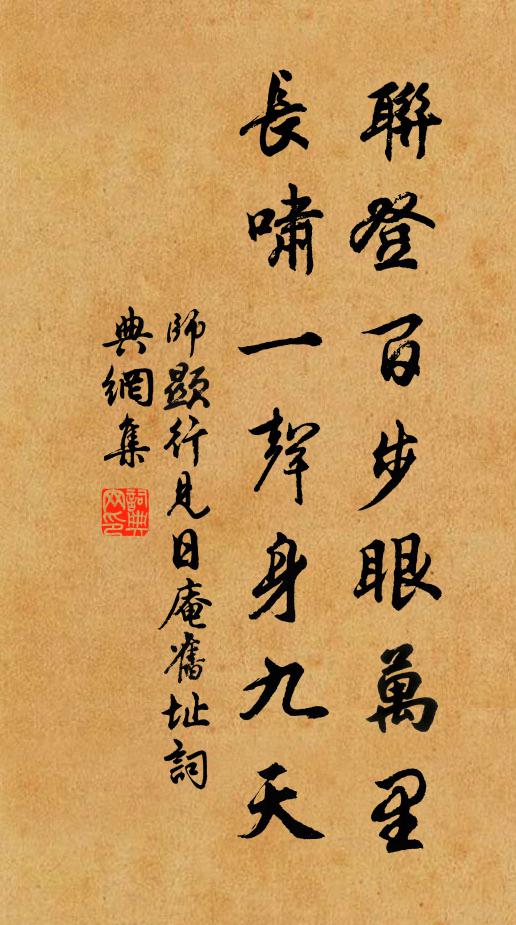 聯登百步眼萬里
長嘯一聲身九天
師顯行見日庵舊址詞
典網集
詞典網印